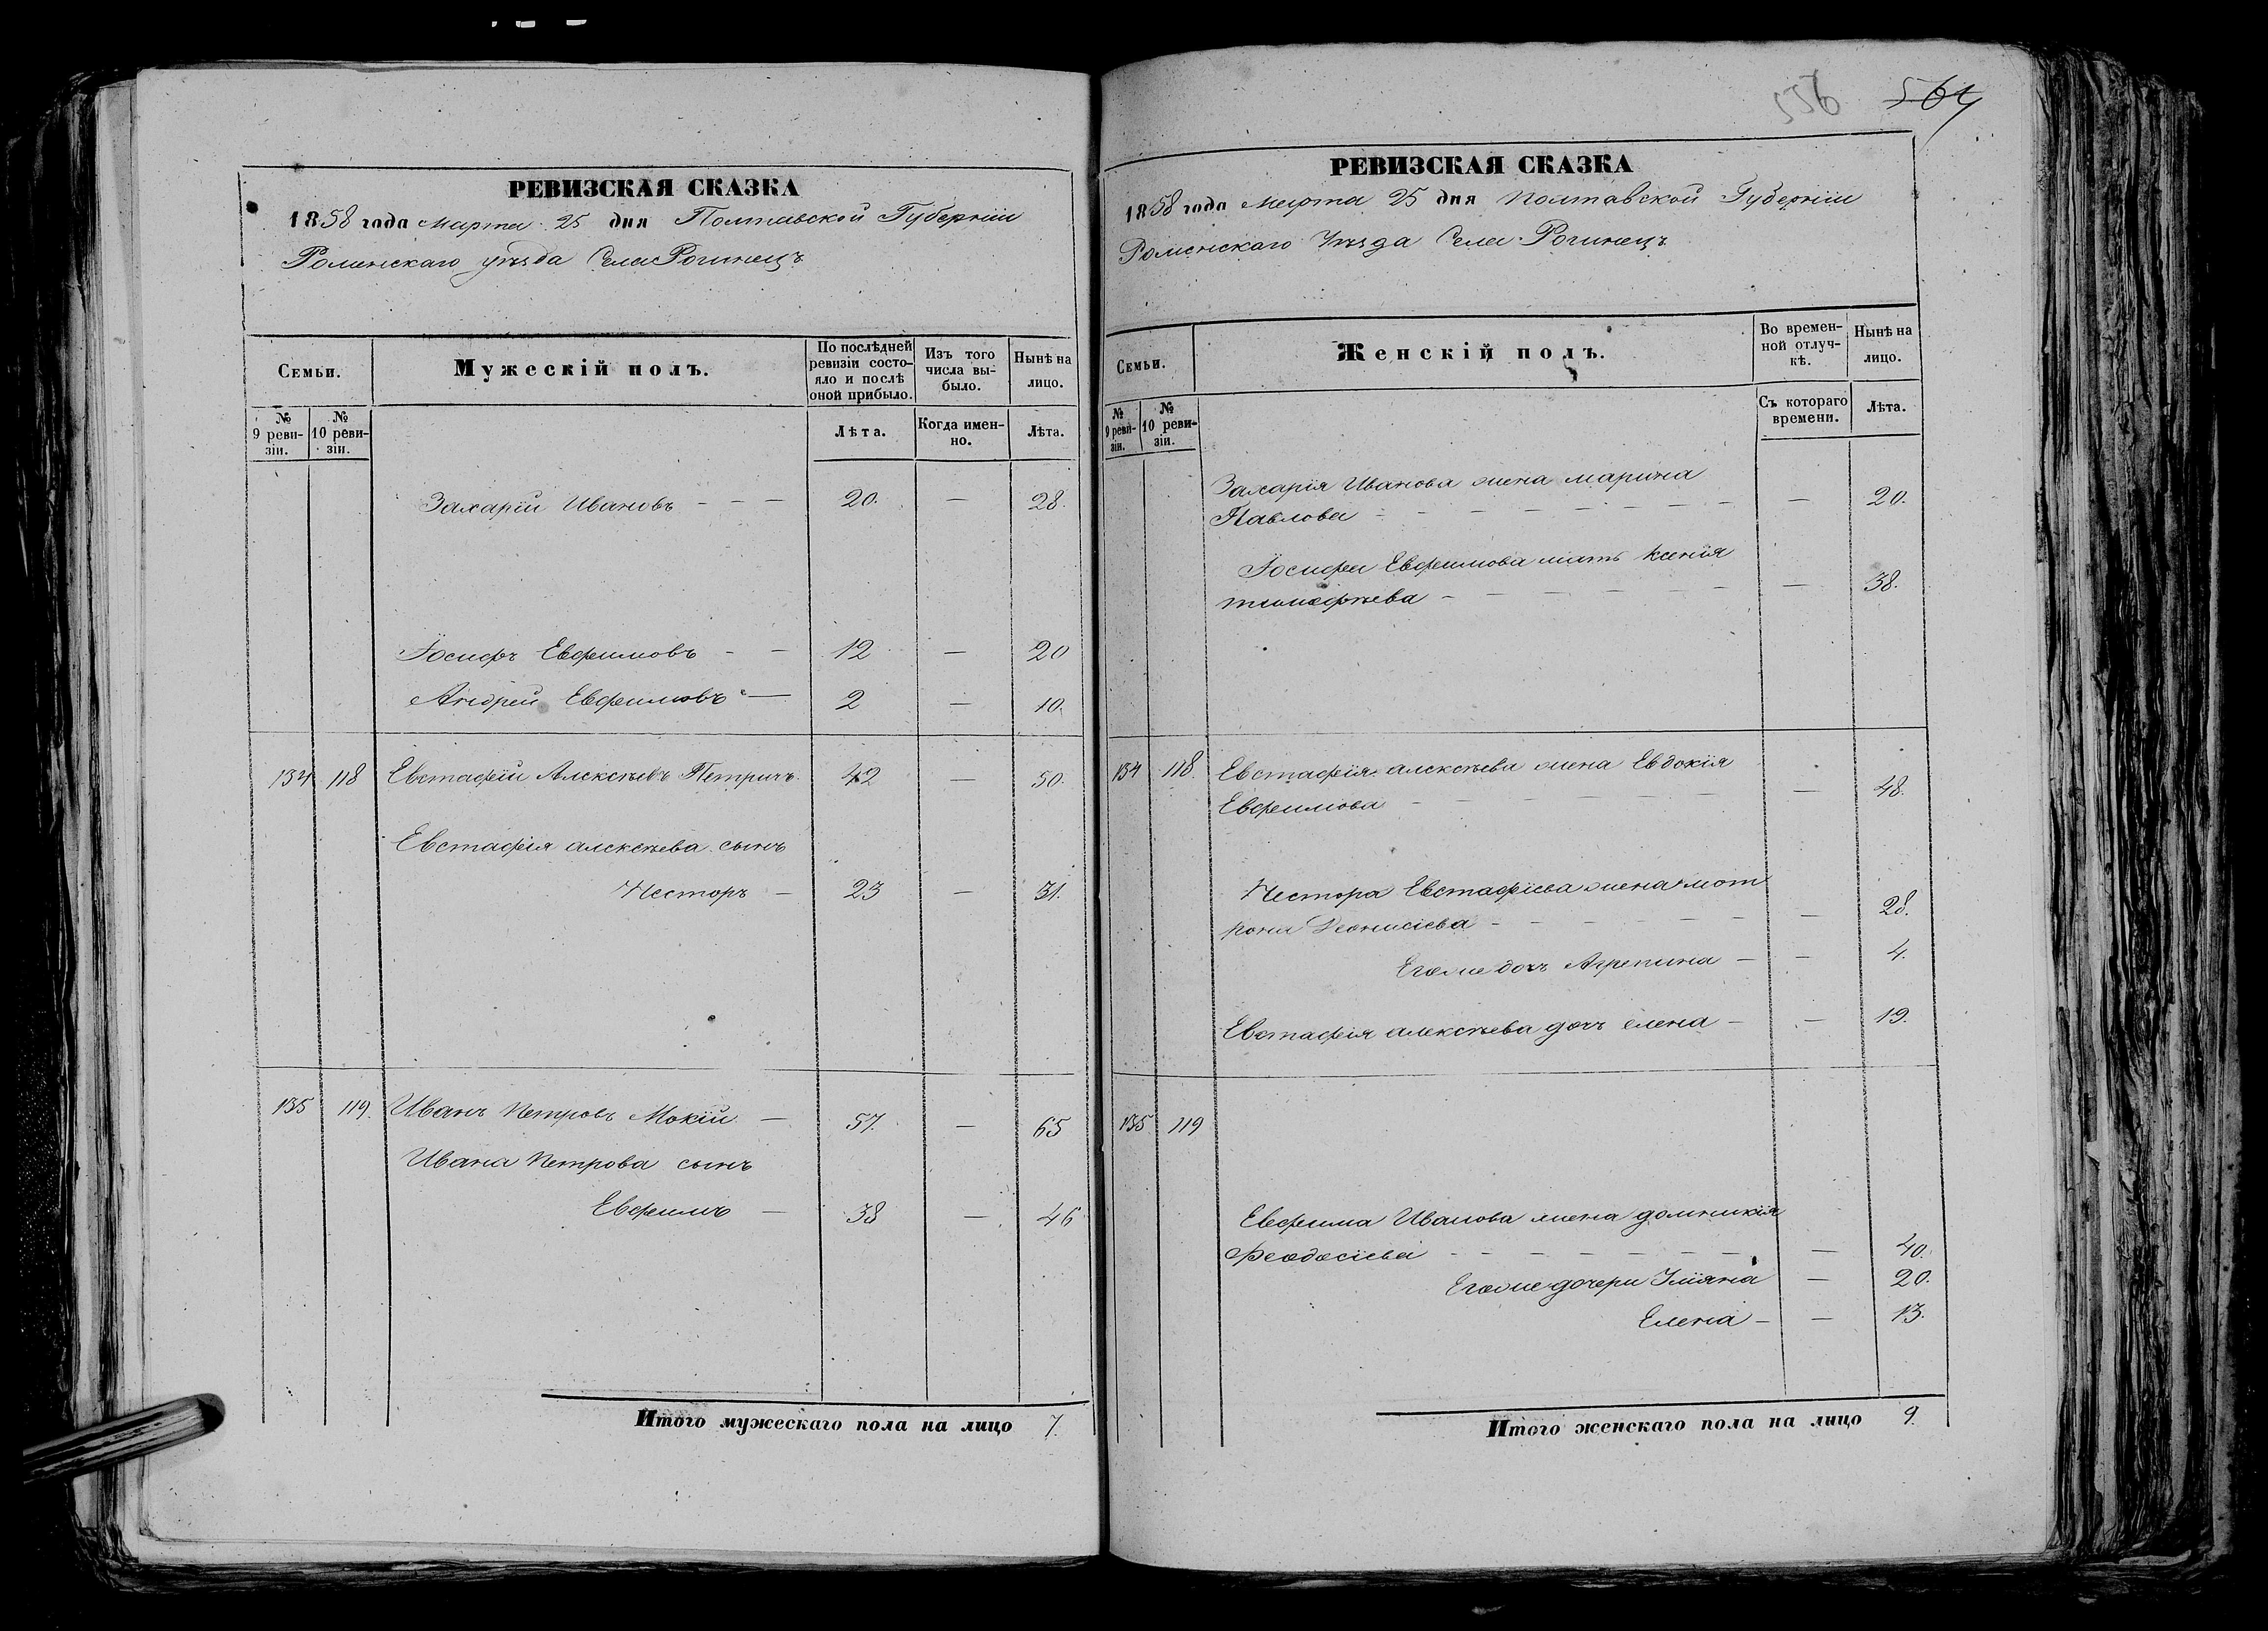 556 564
РЕВИЗСКАЯ СКАЗКА
1858 года Марта 25 дня Полтавской Губерніи
Роменскаго уѣзда Села Рогинецъ
Семьи.
Мужескій полъ.
По послѣдней ревизіи состояло и послѣ оной прибыло.
Изъ того числа выбыло.
Нынѣ на лицо.
№ 9 ревизіи.
№ 10 ревизіи.
Лѣта.
Когда именно.
Лѣта.
Захарій Ивановъ - - - 20. — 28.
Іосифъ Евфимовъ - - 12 — 20
Андрей Евфимовъ — 2 — 10.
134 118 Евстафій Алексѣевъ Петричъ 42 — 50.
Евстафія алексѣева сынъ
Несторъ - 23 — 31.
135 119. Иванъ Петровъ Мокій — 57. — 65
Ивана Петрова сынъ
Евфимъ — 38 — 46
Итого мужескаго пола на лицо 7.
РЕВИЗСКАЯ СКАЗКА
1858 года Марта 25 дня Полтавской Губерніи
Роменскаго Уѣзда Села Рогинецъ
Семьи.
Женскій полъ.
Во временной отлучкѣ.
Нынѣ на лицо.
№ 9 ревизіи.
№ 10 ревизіи.
Съ котораго времени.
Лѣта.
Захарія Иванова жена марина
Павлова - - - - - - - — 20.
Іосифа Евфимова мать Ксенія
тимофѣева - - - - - - — 38.
134 118. Евстафія алексѣева жена Евдокія
Евфимова - - - - - - — 48.
Нестора Евстафіева жена мот
рона Деонисіева - - - - - - — 28.
Егоже дочь Агрепина — — 4.
Евстафія алексѣева дочь елена - — 19.
135 119
Евфима Иванова жена домникія
Феодосіева - - - - - - - — 40.
Егоже дочери Уліяна — 20.
Елена - — 13.
Итого женскаго пола на лицо 9.